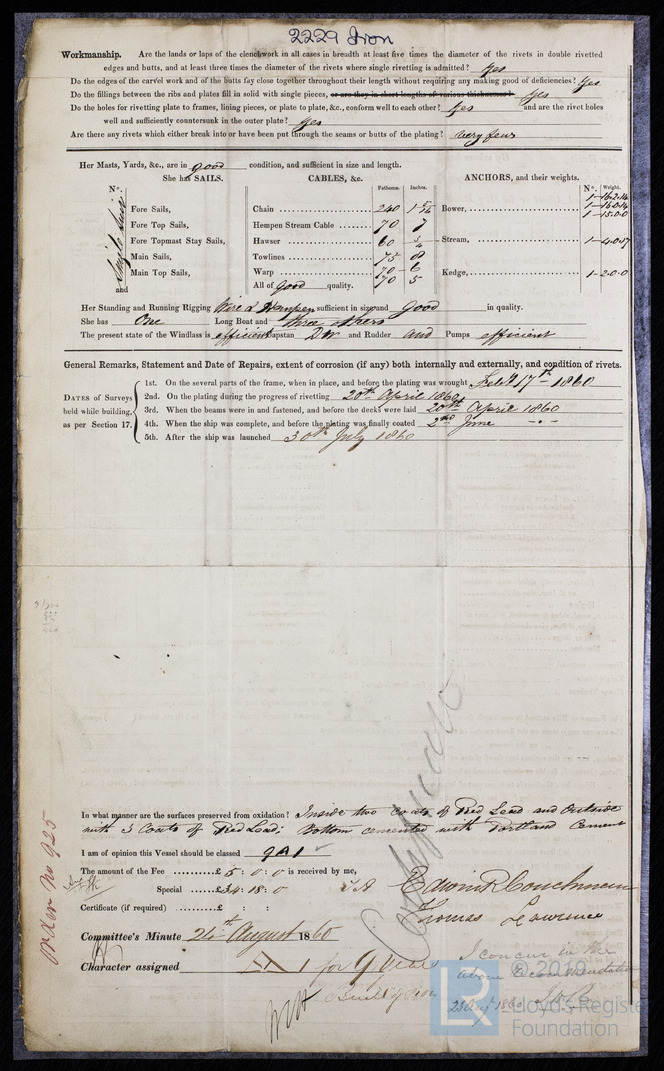 2229 Iron
Workmanship. Are the lands or laps of the clenchwork in all cases in breadth at least five times the diameter of the rivets in double rivetted
edges and butts, and at least three times the diameter of the rivets where single rivetting is admitted? Yes
Do the edges of the carvel work and of the butts fay close together throughout their length without requiring any making good of deficiencies? Yes
Do the fillings between the ribs and plates fill in solid with single pieces, or are they in short lengths of various thicknesses? Yes
Do the holes for rivetting plate to frames, lining pieces, or plate to plate, &c., conform well to each other? Yes and are the rivet holes
well and sufficiently countersunk in the outer plate? Yes
Are there any rivets which either break into or have been put through the seams or butts of the plating? very few
Her Masts, Yards, &c., are in good condition, and sufficient in size and length.
She has SAILS. CABLES, &c. ANCHORS, and their weights.
N°. Fathoms. Inches. N°. Weight.
Single Suit
Fore Sails,
Fore Top Sails,
Fore Topmast Stay Sails,
Main Sails,
Main Top Sails,
and
Chain 240 1 5/16
Hempen Stream Cable 70 7
Hawser 60
Towlines 75 8
Warp 70 6
All of good quality. 70 5
Bower, 1-16-2-14
1-16-0-14
1-15-0-0
Stream,
Kedge, 1-2-0-0
Her Standing and Running Rigging Wire & Hempen sufficient in size and good in quality.
She has One Long Boat and three others
The present state of the Windlass is efficient Capstan Do and Rudder and Pumps efficient
General Remarks, Statement and Date of Repairs, extent of corrosion (if any) both internally and externally, and condition of rivets.
DATES of Surveys held while building, as per Section 17.
1st. On the several parts of the frame, when in place, and before the plating was wrought Feby 17th 1860
2nd. On the plating during the progress of rivetting 20th April 1860
3rd. When the beams were in and fastened, and before the decks were laid 20th April 1860
4th. When the ship was complete, and before the plating was finally coated 2nd June -"-
5th. After the ship was launched 30th July 1860
Certificate
In what manner are the surfaces preserved from oxidation? Inside two coats of Red Lead and Outside
with 3 Coats of Red Lead: Bottom cemented with Portland Cement
I am of opinion this Vessel should be classed 9A1
The amount of the Fee £5 : 0 : 0 is received by me,
Special £34 : 18 : 0
Certificate (if required) £ : :
Edwin R Couchman
Thomas Lawrence
Committee's Minute 24th August 1860
Character assigned A 1 for 9 Years
I concur in the
above Recommendation
23 Aug 1860
Order No 925
© 2019
LR
Lloyd's Register
Foundation